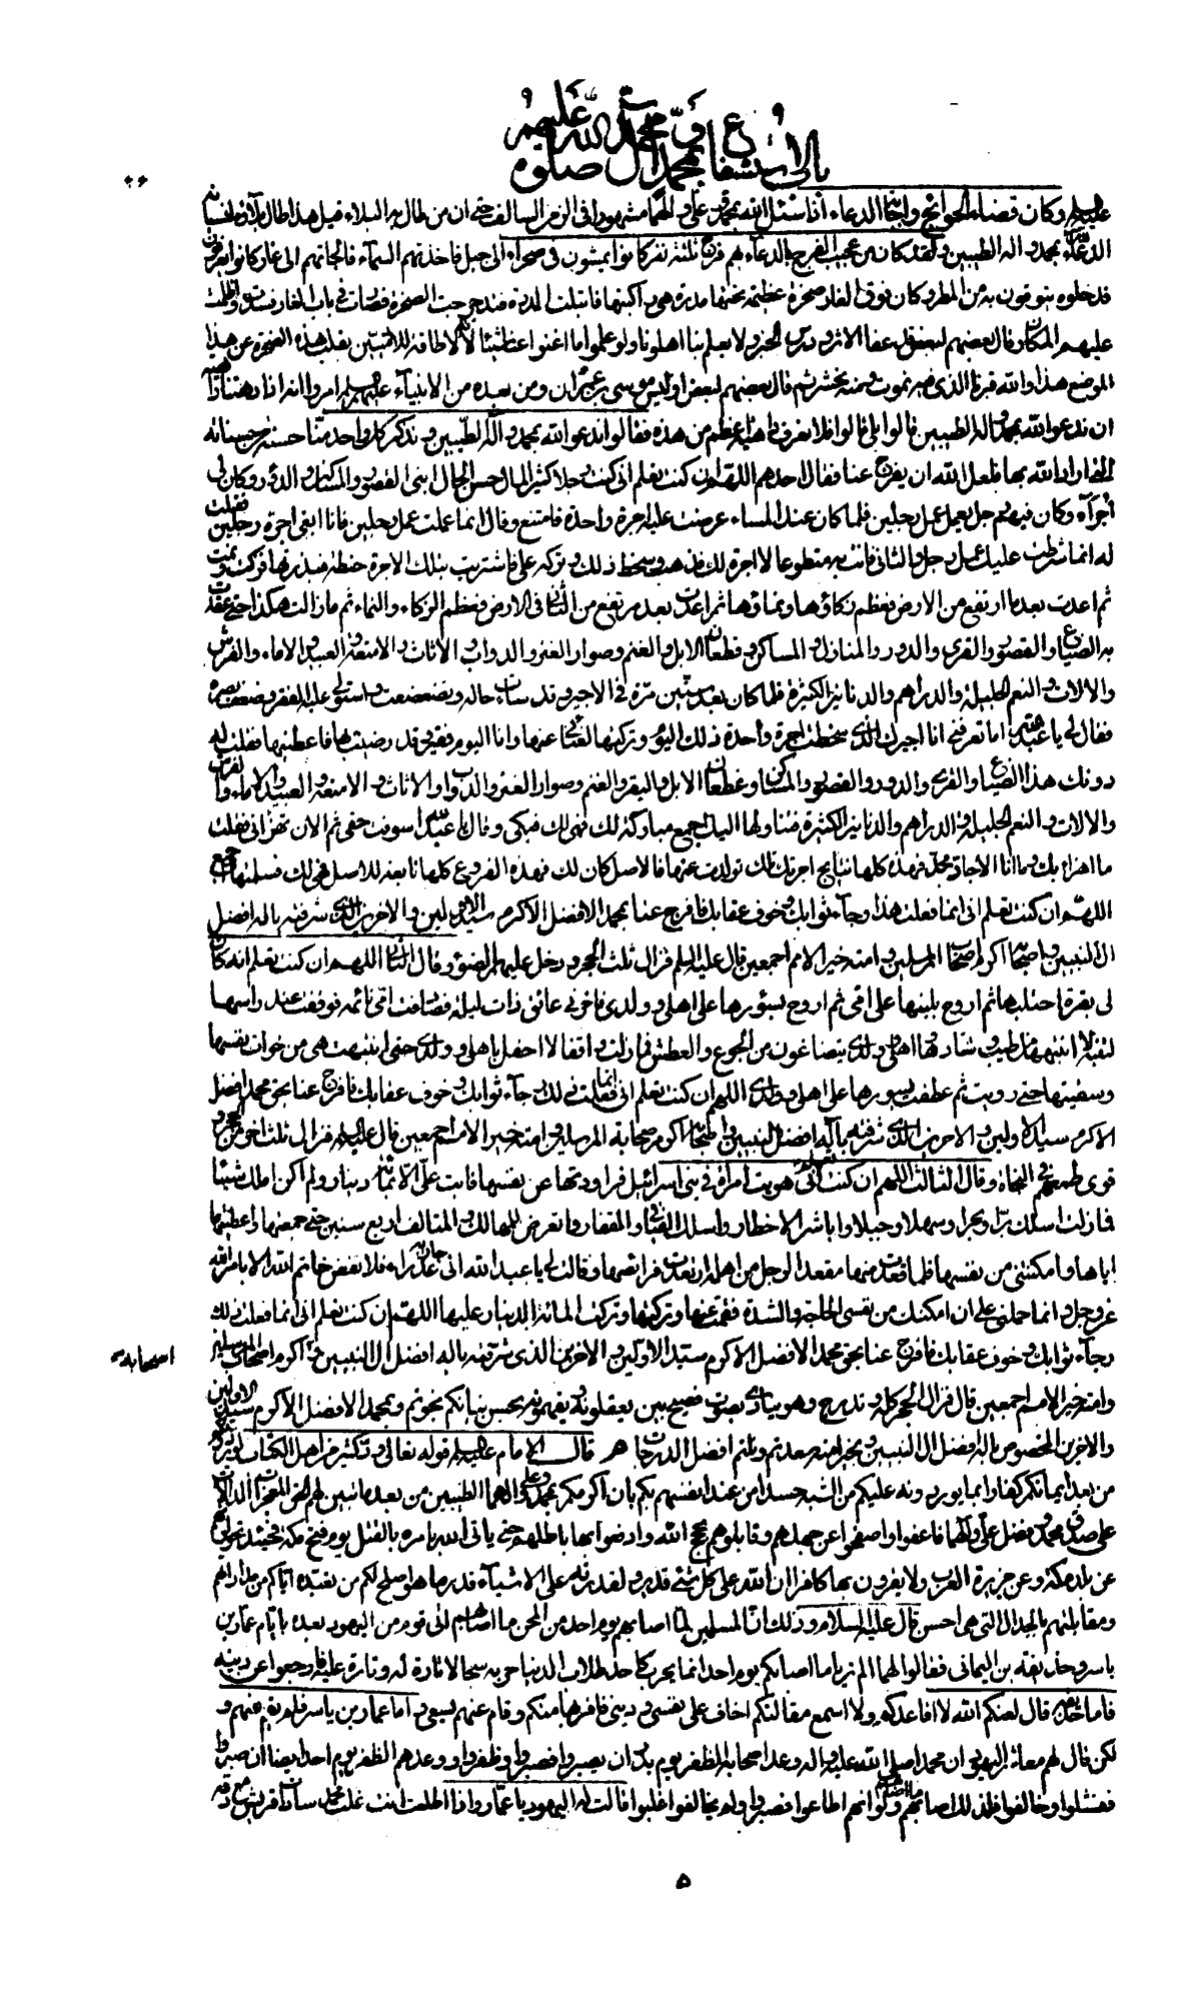 باب الاستشفاع بمحمد وآل محمد صلوة الله عليهم
عليه السلم وكان قضاء الحوائج واجابة الدعاء اذا سئل الله بمحمد وعلي وآلهما مشهورا في الزمن السالف حتى ان من طال به البلاء قيل هذا طال بلاؤه لنسيانه
الدعاء بمحمد واله الطيبين ولقد كان من عجيب الفرج بالدعاء بهم فرج ثلثة نفر كانوا يمشون في صحراء الى جبل فاخذتهم السماء فالجاتهم الى غار كانوا يعرفونه
فدخلوه يتوقون به من المطر وكان فوق الغار صخرة عظيمة تحتها مدرة هي راكبتها فابتلت المدرة فتدحرجت الصخرة فصارت في باب الغار فسدته واظلمت
عليهم المكان وقال بعضهم لبعض قد عفا الاثر ودرس الخبر ولا يعلم بنا اهلونا ولو علموا ما اغنوا عنا شيئا لانه لا طاقة للادميين بقلب هذه الصخرة عن هذا
الموضع هذا والله قبرنا الذى فيه نموت ومنه نحشر ثم قال بعضهم لبعض اوليس موسى بن عمران ومن بعده من الانبياء عليهم السلم امروا انه اذا دهتنا داهية
ان ندعو الله بمحمد واله الطيبين قالوا بلى قالوا فلا نعرف داهية اعظم من هذه فقالوا ندعو الله بمحمد وآله الطيبين ويذكر كل واحد منا حسنة من حسناته
التي اراد الله بها فلعل الله ان يفرج عنا فقال احدهم اللهم ان كنت تعلم انى كنت رجلا كثير المال حسن الحال ابنى القصور والمساكن والدور وكان لي
اجراء وكان فيهم رجل يعمل عمل رجلين فلما كان عند المساء عرضت عليه اجرة واحدة فامتنع وقال انما عملت عمل رجلين فانا ابتغى اجرة رجلين فقلت
له انما اشترطت عليك عمل رجل والثانى فانت به متطوع لا اجرة لك فذهب وسخط ذلك وتركه علي فاشتريت بتلك الاجرة حنطة فبذرتها فزكت ونمت
ثم اعدت بعد ما ارتفع من الارض فعظم زكاؤها ونماؤها ثم اعدت بعد مرتفع من الثانى في الارض فعظم الزكاء والنماء ثم ما زالت هكذا حتى عقدت
به الضياع والقصور والقرى والدور والمنازل والمساكن وقطعان الابل والغنم وصوار الغنم والدواب والاثاث والامتعة والعبيد والاماء والفرش
والالات والنعم الجليلة والدراهم والدنانير الكثيرة فلما كان بعد سنين مر بي ذلك الاجير وقد ساءت حاله وتضعضعت واستولى عليه الفقر وضعف بصره
فقال لى يا عبد الله اما تعرفنى انا اجيرك الذى سخطت اجرة واحدة ذلك اليوم وتركتها لغنائى عنها وانا اليوم فقير وقد رضيت بها فاعطنيها فقلت له
دونك هذا الضياع والقرى والدور والقصور والمساكن وقطعان الابل والبقر والغنم وصوار الغنم والدواب والاثاث والامتعة والعبيد والاماء والفرش
والالات والنعم الجليلة والدراهم والدنانير الكثيرة فتناولها اليك اجمع مباركة لك فهي لك فبكى وقال يا عبد الله سوفت حقى ثم الان تهزأ بى فقلت
ما اهزأ بك وما انا الا جاد مجد فهذه كلها نتايج اجرتك تلك تولدت عنها فالاصل كان لك فهذه الفروع كلها تابعة للاصل فهي لك فسلمتها اجمع
اللهم ان كنت تعلم انى انما فعلت هذا رجاء ثوابك وخوف عقابك فافرج عنا بمحمد الافضل الاكرم سيد الاولين والاخرين الذى شرفته باله افضل
ال النبيين واصحابه اكرم اصحاب المرسلين وامته خير الامم اجمعين قال عليه السلم فزال ثلث الحجر ودخل عليهم الضوء وقال الثانى اللهم ان كنت تعلم انه كان
لى بقرة احتلبها ثم اروح بلبنها على امى ثم اروح بسؤرها على اهلى وولدى فاخرنى عائق ذات ليلة فصادفت امى نائمة فوقفت عند راسها
لتنبه لا انبهها من طيب رقادها واهلى وولدى يتضاغون من الجوع والعطش فما زلت واقفا لا احفل باهلى وولدى حتى انتبهت هي من ذات نفسها
وسقيتها حتى رويت ثم عطفت بسورها على اهلى وولدى اللهم ان كنت تعلم انى انما فعلت ذلك رجاء ثوابك وخوف عقابك فافرج عنا بحق محمد الافضل
الاكرم سيد الاولين والاخرين الذى شرفته بآله افضل آل النبيين واصحابه اكرم صحابة المرسلين وامته خير الامم اجمعين قال عليه السلم فزال ثلث اخر من الحجر و
قوى طمعهم في النجاة وقال الثالث اللهم ان كنت تعلم انى هويت امراة في بنى اسرائيل فراودتها عن نفسها فابت علي الا بمائة دينار ولم اكن املك شيئا
فما زلت اسلك برا وبحرا وسهلا وجبلا واباشر الاخطار واسلك الفيافى والقفار واتعرض للمهالك والمتالف اربع سنين حتى جمعتها واعطيتها
اياها وامكنتنى من نفسها فلما قعدت منها مقعد الرجل من اهله ارتعدت فرائصها وقالت لى يا عبد الله انى جارية عذراء فلا تفض خاتم الله الا بامر الله
عز وجل وانما حملنى على ان امكنك من نفسى الحاجة والشدة فقمت عنها وتركتها وتركت المائة الدينار عليها اللهم ان كنت تعلم انى انما فعلت ذلك
رجاء ثوابك وخوف عقابك فافرج عنا بحق محمد الافضل الاكرم سيد الاولين والاخرين الذى شرفته باله افضل ال النبيين واصحابه اكرم اصحاب المرسلين
اصحابه
وامته خير الامم اجمعين قال فزال الحجر كله وتدحرج وهو ينادى بصوت فصيح بين يعقلونه ويفهمونه بحسن نياتكم نجوتم وبمحمد الافضل الاكرم سيد الاولين
والاخرين المخصوص باله افضل ال النبيين وبخير امته سعدتم ونلتم افضل الدرجات قال الامام عليه السلم قوله تعالى ود كثير من اهل الكتاب لو يردونكم
من بعد ايمانكم كفارا بما يوردونه عليكم من الشبه حسدا من عند انفسهم لكم بان اكرمكم بمحمد وعلى والهما الطيبين من بعد ما تبين لهم الحق بالمعجزات الدالات
على صدق محمد وفضل علي وآلهما فاعفوا واصفحوا عن جهلهم وقابلوهم بحجج الله وادفعوا بها باطلهم حتى ياتى الله بامره بالقتل يوم فتح مكة فحينئذ تجلونهم
عن بلد مكة وعن جزيرة العرب ولا يقرون بها كافرا ان الله على كل شئ قدير ولقدرته على الاشياء قدير ما هو اصلح لكم من تعبده اياكم من مداراتهم
ومقابلتهم بالجدال التى هي احسن قال عليه السلام وذلك ان المسلمين لما اصابهم يوم احد من المحن ما اصابهم لقى قوم من اليهود بعده بايام عمار بن
ياسر وحذيفة بن اليمانى فقالوا لهما الم تريا ما اصابكم يوم احد انما يحرب كاحد طلاب الدنيا حربه سجالا تارة له وتارة عليه فارجعوا عن دينه
فاما حذيفة قال لعنكم الله لا اقاعدكم ولا اسمع مقالتكم اخاف على نفسى ودينى فافر بها منكم وقام عنهم يسعى واما عمار بن ياسر فلم يقم عنهم و
لكن قال لهم معاشر اليهود ان محمدا صلى الله عليه واله وعد اصحابه الظفر يوم بدر ان يصبروا فصبروا وظفروا ووعدهم الظفر يوم احد ايضا ان صبروا
ففشلوا وخالفوا فلذلك اصابهم ما اصابهم ولو انهم اطاعوا فصبروا ولم يخالفوا غلبوا فقالت له اليهود يا عمار واذا اطعت انت غلب محمد سادات قريش مع دقة
٥